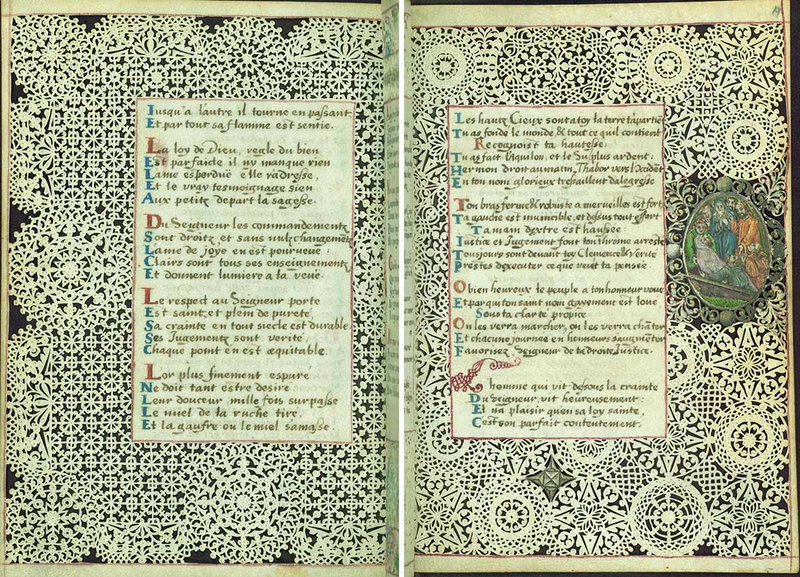 Iusqu'a l'autre il tourne en passant
Et par tout sa flamme est sentie.
La loy de Dieu, regle du bien
Est parfaicte il n'y manque rien
L'ame esperdue elle radresse,
Et le vray tesmoignage sien
Aux petitz depart la sagesse.
Du Seigneur les commandementz
Sont droitz et sans nulz changementz
L'ame de joye en est pourveue
Clairs sont tous ses enseignementz
Et donnent lumiere a la veue
Le respect au Seigneur porte
Est saint, et plein de pureté,
Sa crainte en tout siecle est durable
Ses Iugementz sont verité,
Chaque point en est equitable.
L'or plus finement espuré
Ne doit tant estre desiré
Leur douceur mille fois surpasse
Le miel de la ruche tiré,
Et la gaufre ou le miel s'amasse.
Les hautz Cieux sont a toy la terre t'apartiẽt
Tu as fondé le monde & tout ce qui contient
Recognoist ta hautesse.
Tu as fait l'Aquilon, et le Su plus ardent.
Hermon droit au matin, Thabor vers l'Occidẽt
En ton nom glorieux tresaillent d'alegresse
Ton bras ferme & robuste a merveilles est fort
Ta gauche est invincible, et dessus tout effort
Ta main dextre est haussée
Iustice et Iugement font ton throsne arresté
Tousjours sont devant toy Clemence & Verité
Prestes d'executer ce que veut ta pensée
O bien heureux le peuple a ton honneur voué
Et par qui ton saint nom
est loué
Sous ta clarté propice
On les verra marcher, on les verra chãter
Et chacune journée en honneurs s'augmẽter
Favorisez Seigneur de ta droite Iustice.
homme qui vit dessous la crainte
Du Seigneur, vit heureusement:
Et n'a plaisir qu'en sa loy sainte,
C'est son parfait contentement.